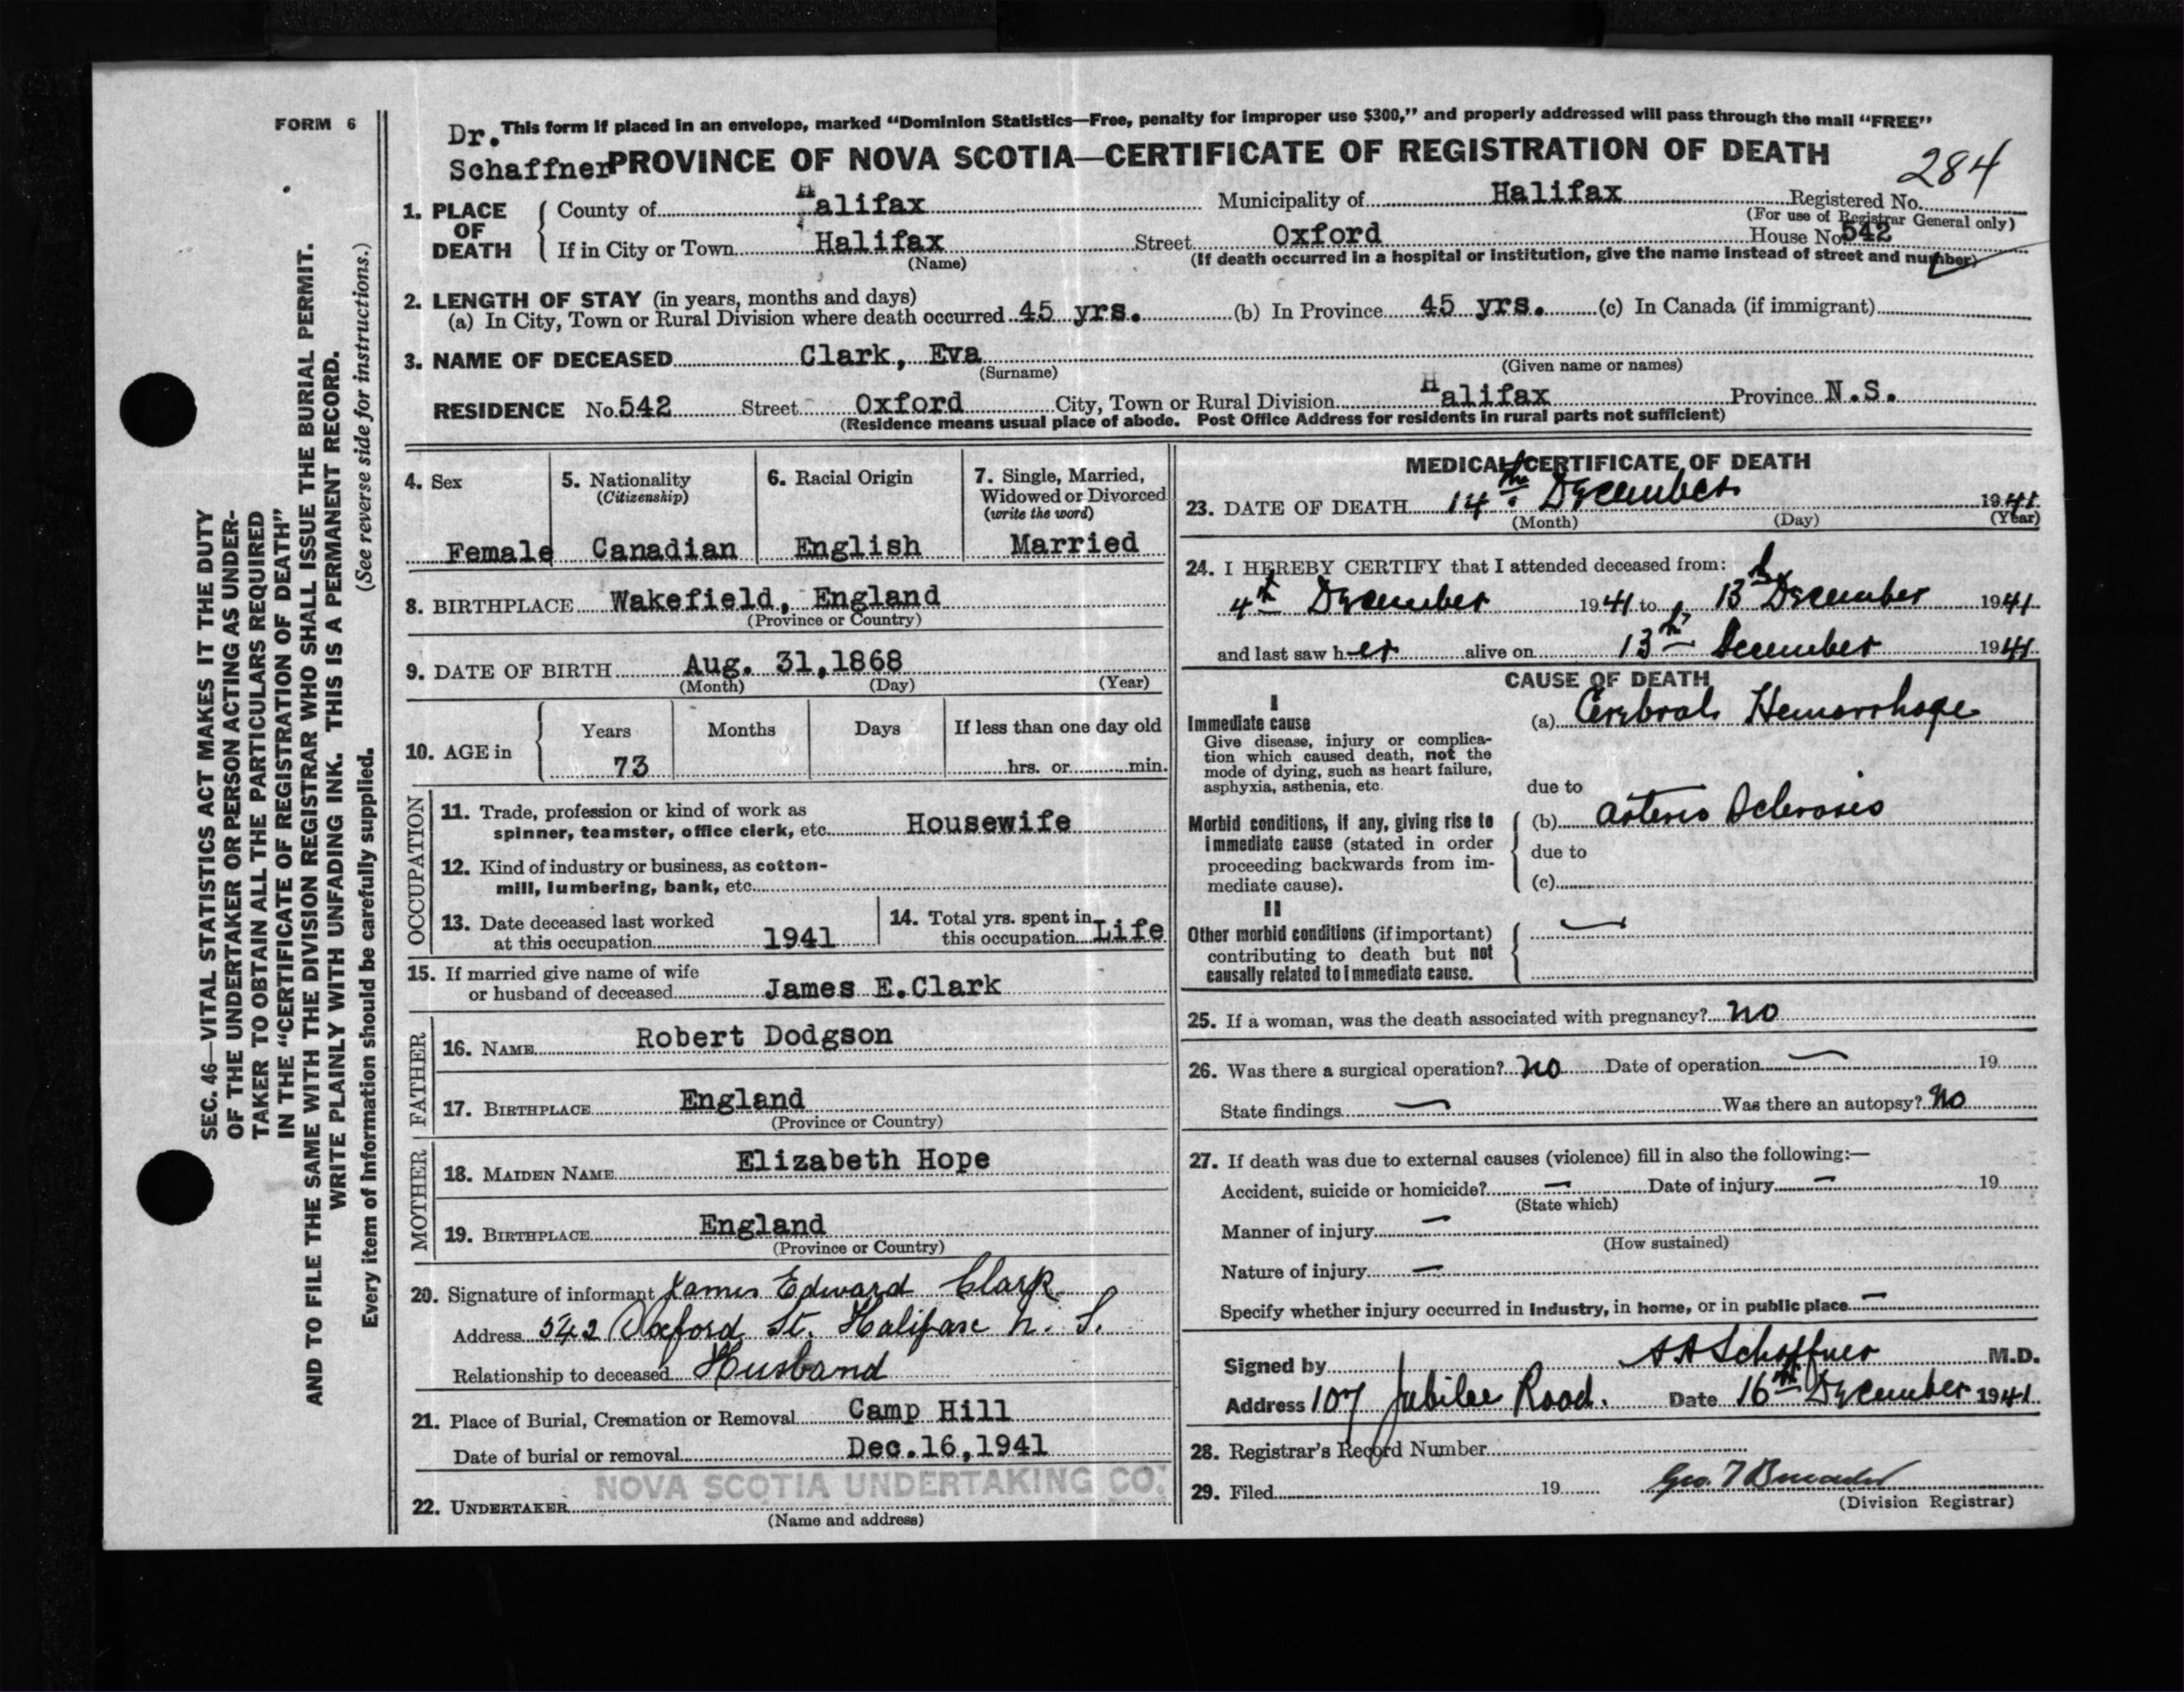 FORM 6
SEC. 46—VITAL STATISTICS ACT MAKES IT THE DUTY
OF THE UNDERTAKER OR PERSON ACTING AS UNDER-
TAKER TO OBTAIN ALL THE PARTICULARS REQUIRED
IN THE "CERTIFICATE OF REGISTRATION OF DEATH"
AND TO FILE THE SAME WITH THE DIVISION REGISTRAR WHO SHALL ISSUE THE BURIAL PERMIT.
WRITE PLAINLY WITH UNFADING INK. THIS IS A PERMANENT RECORD.
Every item of information should be carefully supplied. (See reverse side for instructions.)
Dr. This form if placed in an envelope, marked "Dominion Statistics—Free, penalty for improper use $300," and properly addressed will pass through the mail "FREE"
Schaffner PROVINCE OF NOVA SCOTIA—CERTIFICATE OF REGISTRATION OF DEATH
284
1. PLACE OF DEATH
County of Halifax Municipality of Halifax Registered No.
(For use of Registrar General only)
If in City or Town Halifax Street Oxford House No. 542
(Name) (If death occurred in a hospital or institution, give the name instead of street and number)
2. LENGTH OF STAY (in years, months and days)
(a) In City, Town or Rural Division where death occurred 45 yrs. (b) In Province 45 yrs. (c) In Canada (if immigrant)
3. NAME OF DECEASED Clark, Eva
(Surname) (Given name or names)
RESIDENCE No. 542 Street Oxford City, Town or Rural Division Halifax Province N.S.
(Residence means usual place of abode. Post Office Address for residents in rural parts not sufficient)
4. Sex 5. Nationality 6. Racial Origin 7. Single, Married,
(Citizenship) Widowed or Divorced
(write the word)
Female Canadian English Married
8. BIRTHPLACE Wakefield, England
(Province or Country)
9. DATE OF BIRTH Aug. 31, 1868
(Month) (Day) (Year)
10. AGE in Years Months Days If less than one day old
73 hrs. or min.
OCCUPATION
11. Trade, profession or kind of work as
spinner, teamster, office clerk, etc. Housewife
12. Kind of industry or business, as cotton-
mill, lumbering, bank, etc.
13. Date deceased last worked
at this occupation 1941
14. Total yrs. spent in
this occupation Life
15. If married give name of wife
or husband of deceased James E. Clark
FATHER
16. NAME Robert Dodgson
17. BIRTHPLACE England
(Province or Country)
MOTHER
18. MAIDEN NAME Elizabeth Hope
19. BIRTHPLACE England
(Province or Country)
20. Signature of informant James Edward Clark
Address 542 Oxford St. Halifax N. S.
Relationship to deceased Husband
21. Place of Burial, Cremation or Removal Camp Hill
Date of burial or removal Dec. 16, 1941
NOVA SCOTIA UNDERTAKING CO.
22. UNDERTAKER
(Name and address)
MEDICAL CERTIFICATE OF DEATH
23. DATE OF DEATH 14th December 1941
(Month) (Day) (Year)
24. I HEREBY CERTIFY that I attended deceased from:
4th December 1941 to 13th December 1941
and last saw her alive on 13th December 1941
CAUSE OF DEATH
I
Immediate cause (a) Cerebral Hemorrhage
Give disease, injury or complica-
tion which caused death, not the
mode of dying, such as heart failure,
asphyxia, asthenia, etc.
due to
Morbid conditions, if any, giving rise to (b) Arterio Sclerosis
immediate cause (stated in order
proceeding backwards from im- due to
mediate cause). (c)
II
Other morbid conditions (if important)
contributing to death but not
causally related to immediate cause.
25. If a woman, was the death associated with pregnancy? no
26. Was there a surgical operation? no Date of operation — 19
State findings — Was there an autopsy? No
27. If death was due to external causes (violence) fill in also the following:—
Accident, suicide or homicide? — Date of injury — 19
(State which)
Manner of injury —
(How sustained)
Nature of injury —
Specify whether injury occurred in industry, in home, or in public place —
Signed by A A Schaffner M.D.
Address 107 Jubilee Road. Date 16th December 1941
28. Registrar's Record Number
29. Filed 19 Geo. T
(Division Registrar)